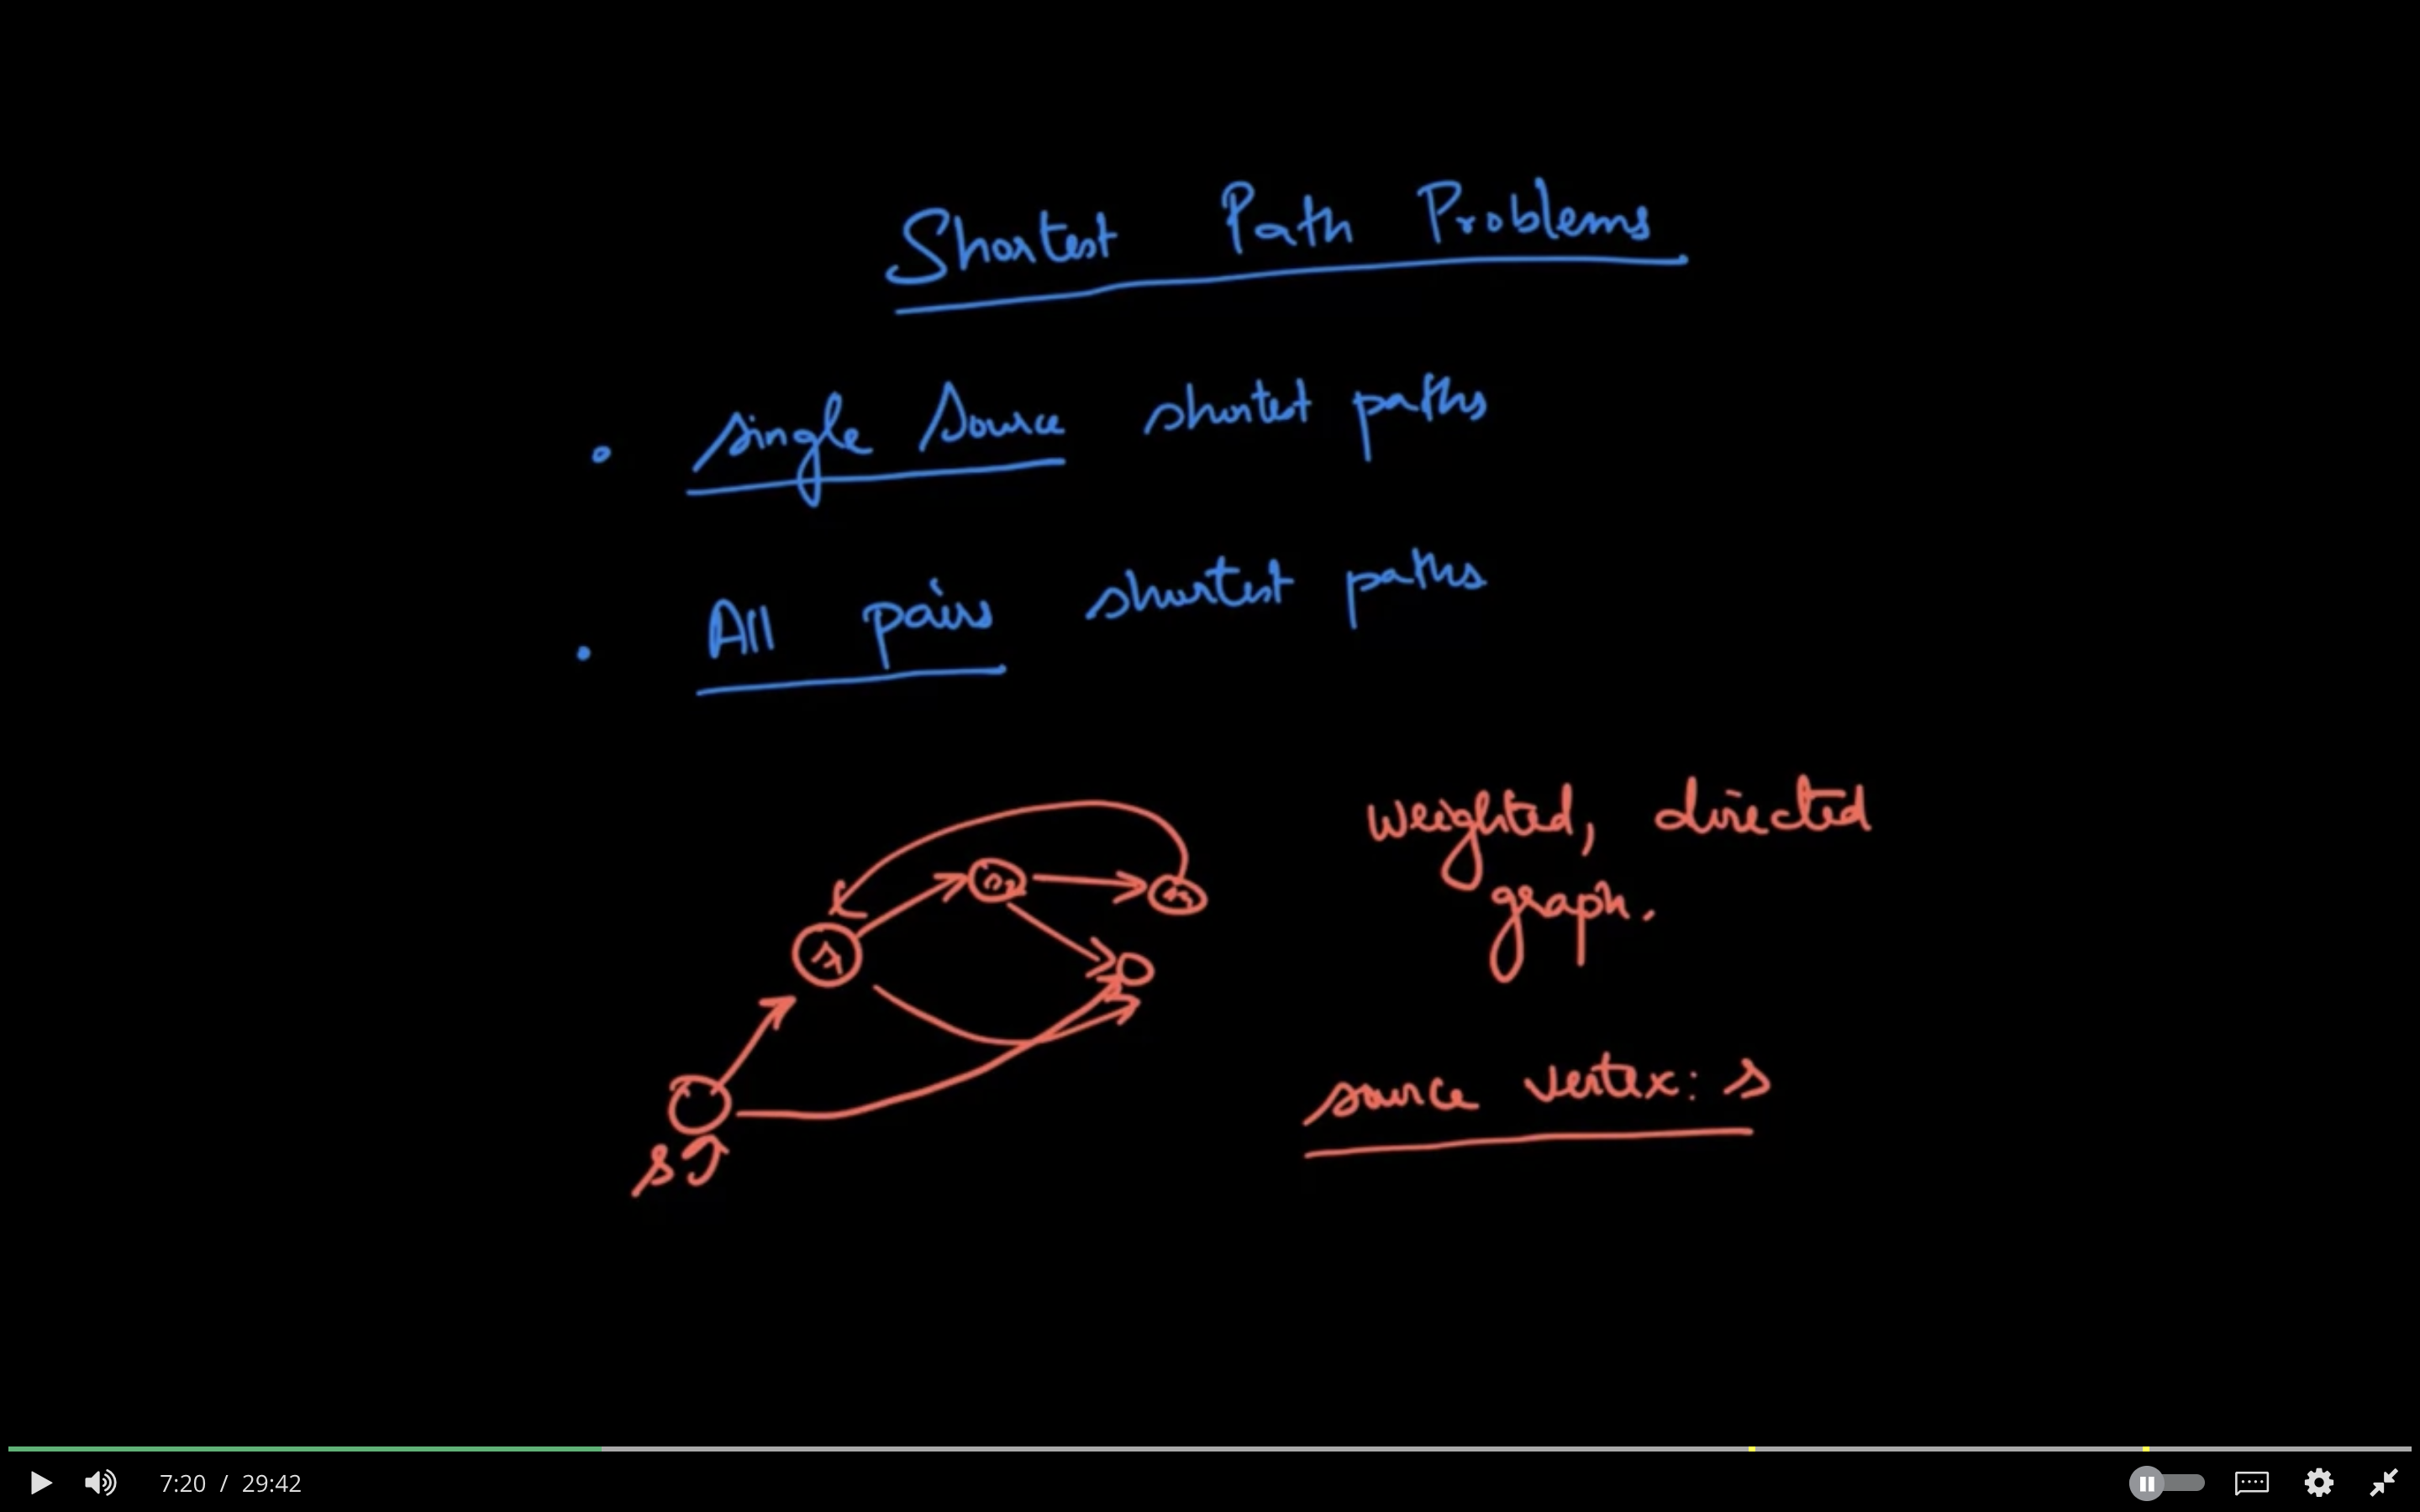 Shortest Path Problems
• Single Source shortest paths
• All pairs shortest paths
weighted, directed
graph.
source vertex: s
s
7:20 / 29:42